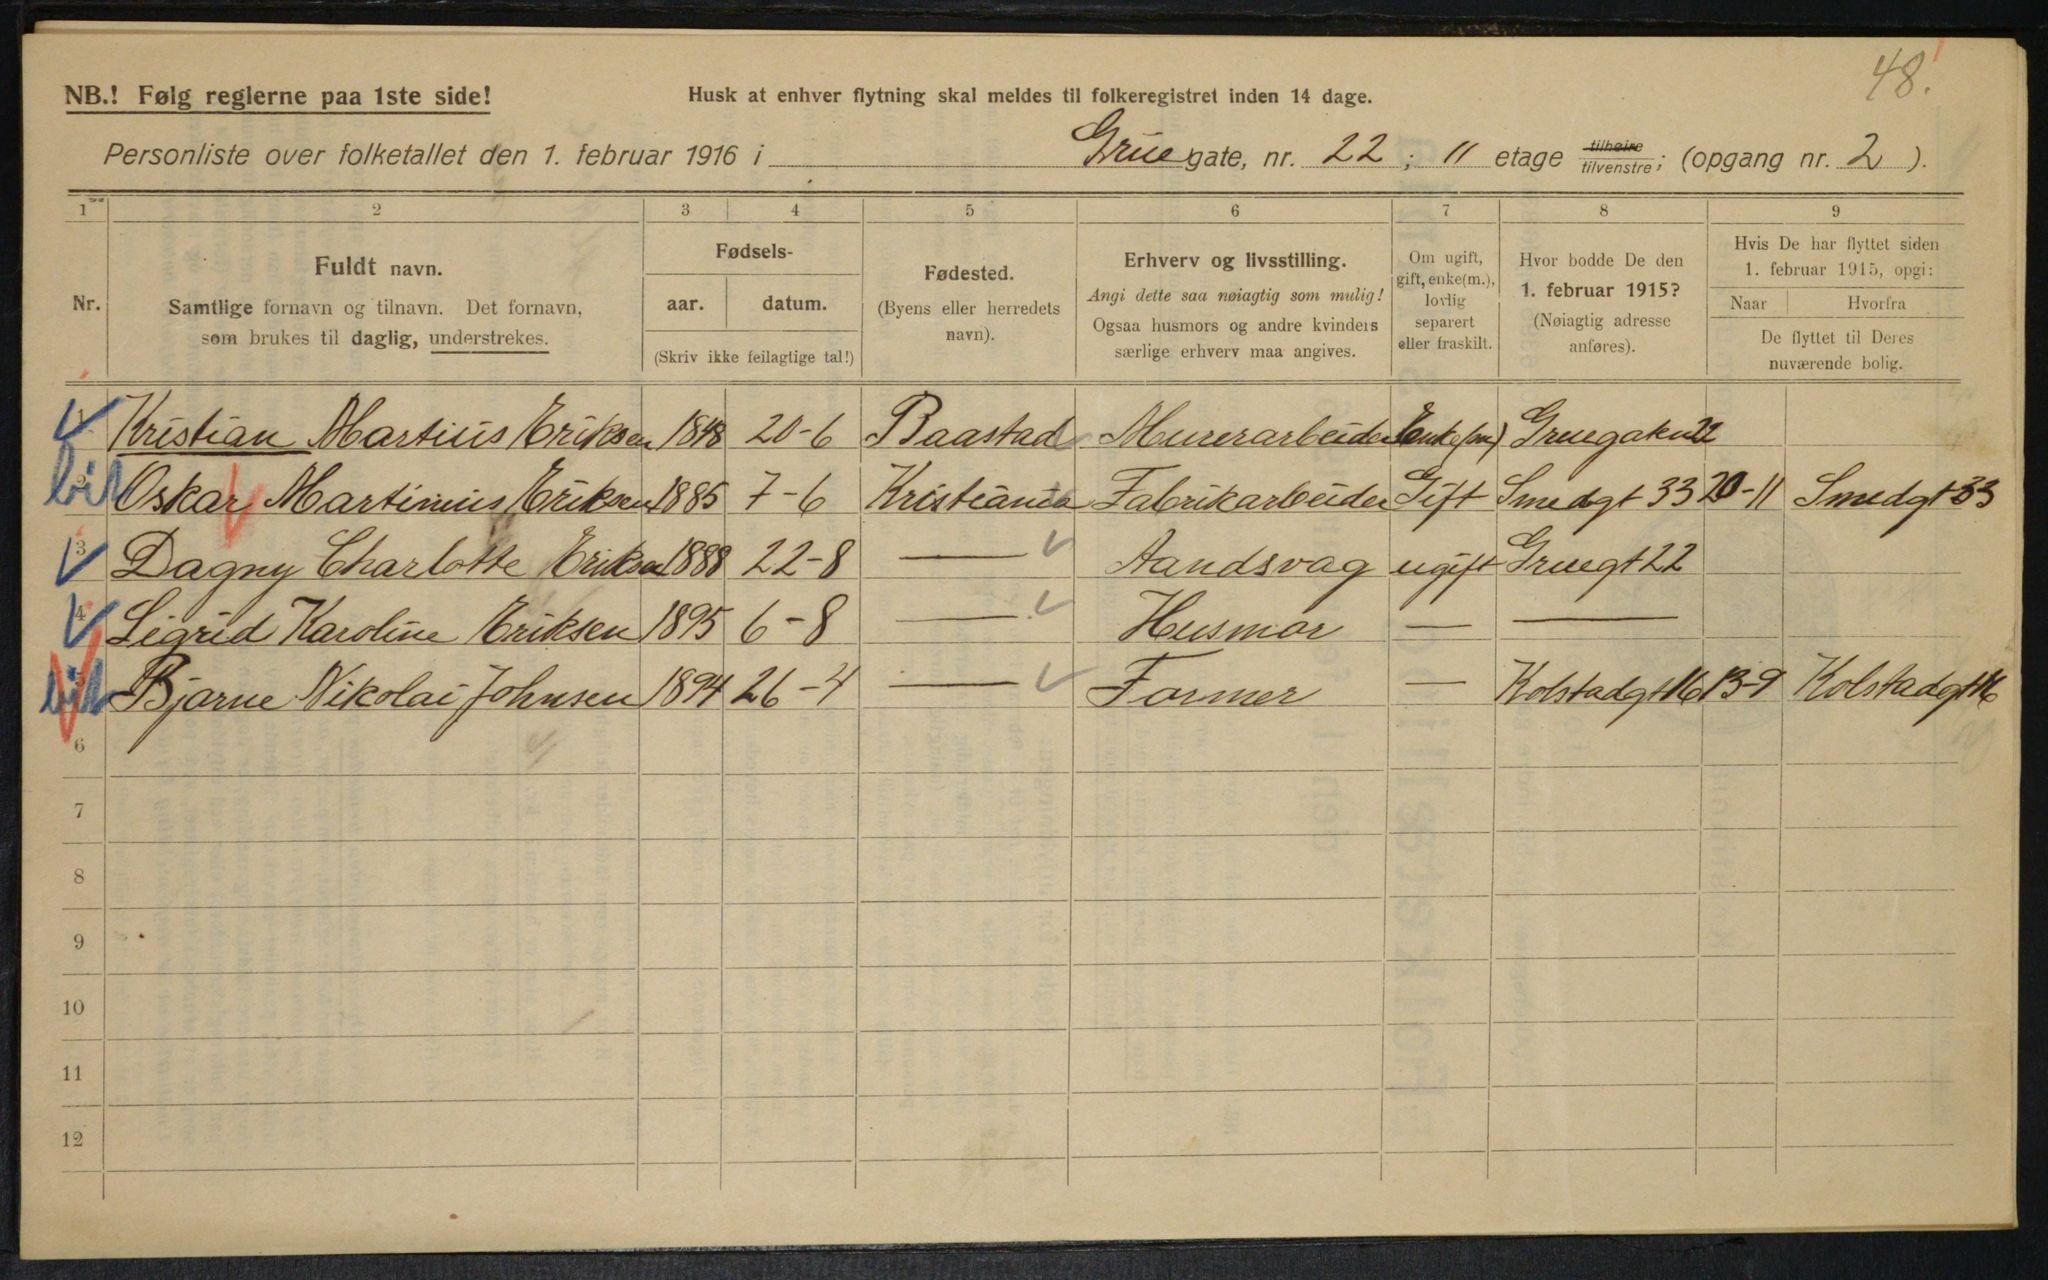 48.
NB.! Følg reglerne paa 1ste side!
Husk at enhver flytning skal meldes til folkeregistret inden 14 dage.
Personliste over folketallet den 1. februar 1916 i Gruegate, nr. 22; 11 etage tilhøire/tilvenstre; (opgang nr. 2).
1 2 3 4 5 6 7 8 9
Nr.
Fuldt navn.
Samtlige fornavn og tilnavn. Det fornavn,
som brukes til daglig, understrekes.
Fødsels-
aar. datum.
(Skriv ikke feilagtige tal!)
Fødested.
(Byens eller herredets
navn).
Erhverv og livsstilling.
Angi dette saa nøiagtig som mulig!
Ogsaa husmors og andre kvinders
særlige erhverv maa angives.
Om ugift,
gift, enke(m.),
lovlig
separert
eller fraskilt.
Hvor bodde De den
1. februar 1915?
(Nøiagtig adresse
anføres).
Hvis De har flyttet siden
1. februar 1915, opgi:
Naar Hvorfra
De flyttet til Deres
nuværende bolig.
1 Kristian Martius Eriksen 1848 20-6 Baastad Murerarbeider Enke(m) Gruegaten 22
2 Oskar Martinius Eriksen 1885 7-6 Kristiania Fabrikarbeider Gift Smedgt 33 20-11 Smedgt 33
3 Dagny Charlotte Eriksen 1888 22-8 — Aandsvag ugift Gruegt 22
4 Sigrid Karoline Eriksen 1895 6-8 — Husmor — —
5 Bjarne Nikolai Johnsen 1894 26-4 — Former — Kolstadgt 16 13-9 Kolstadgt 16
6
7
8
9
10
11
12